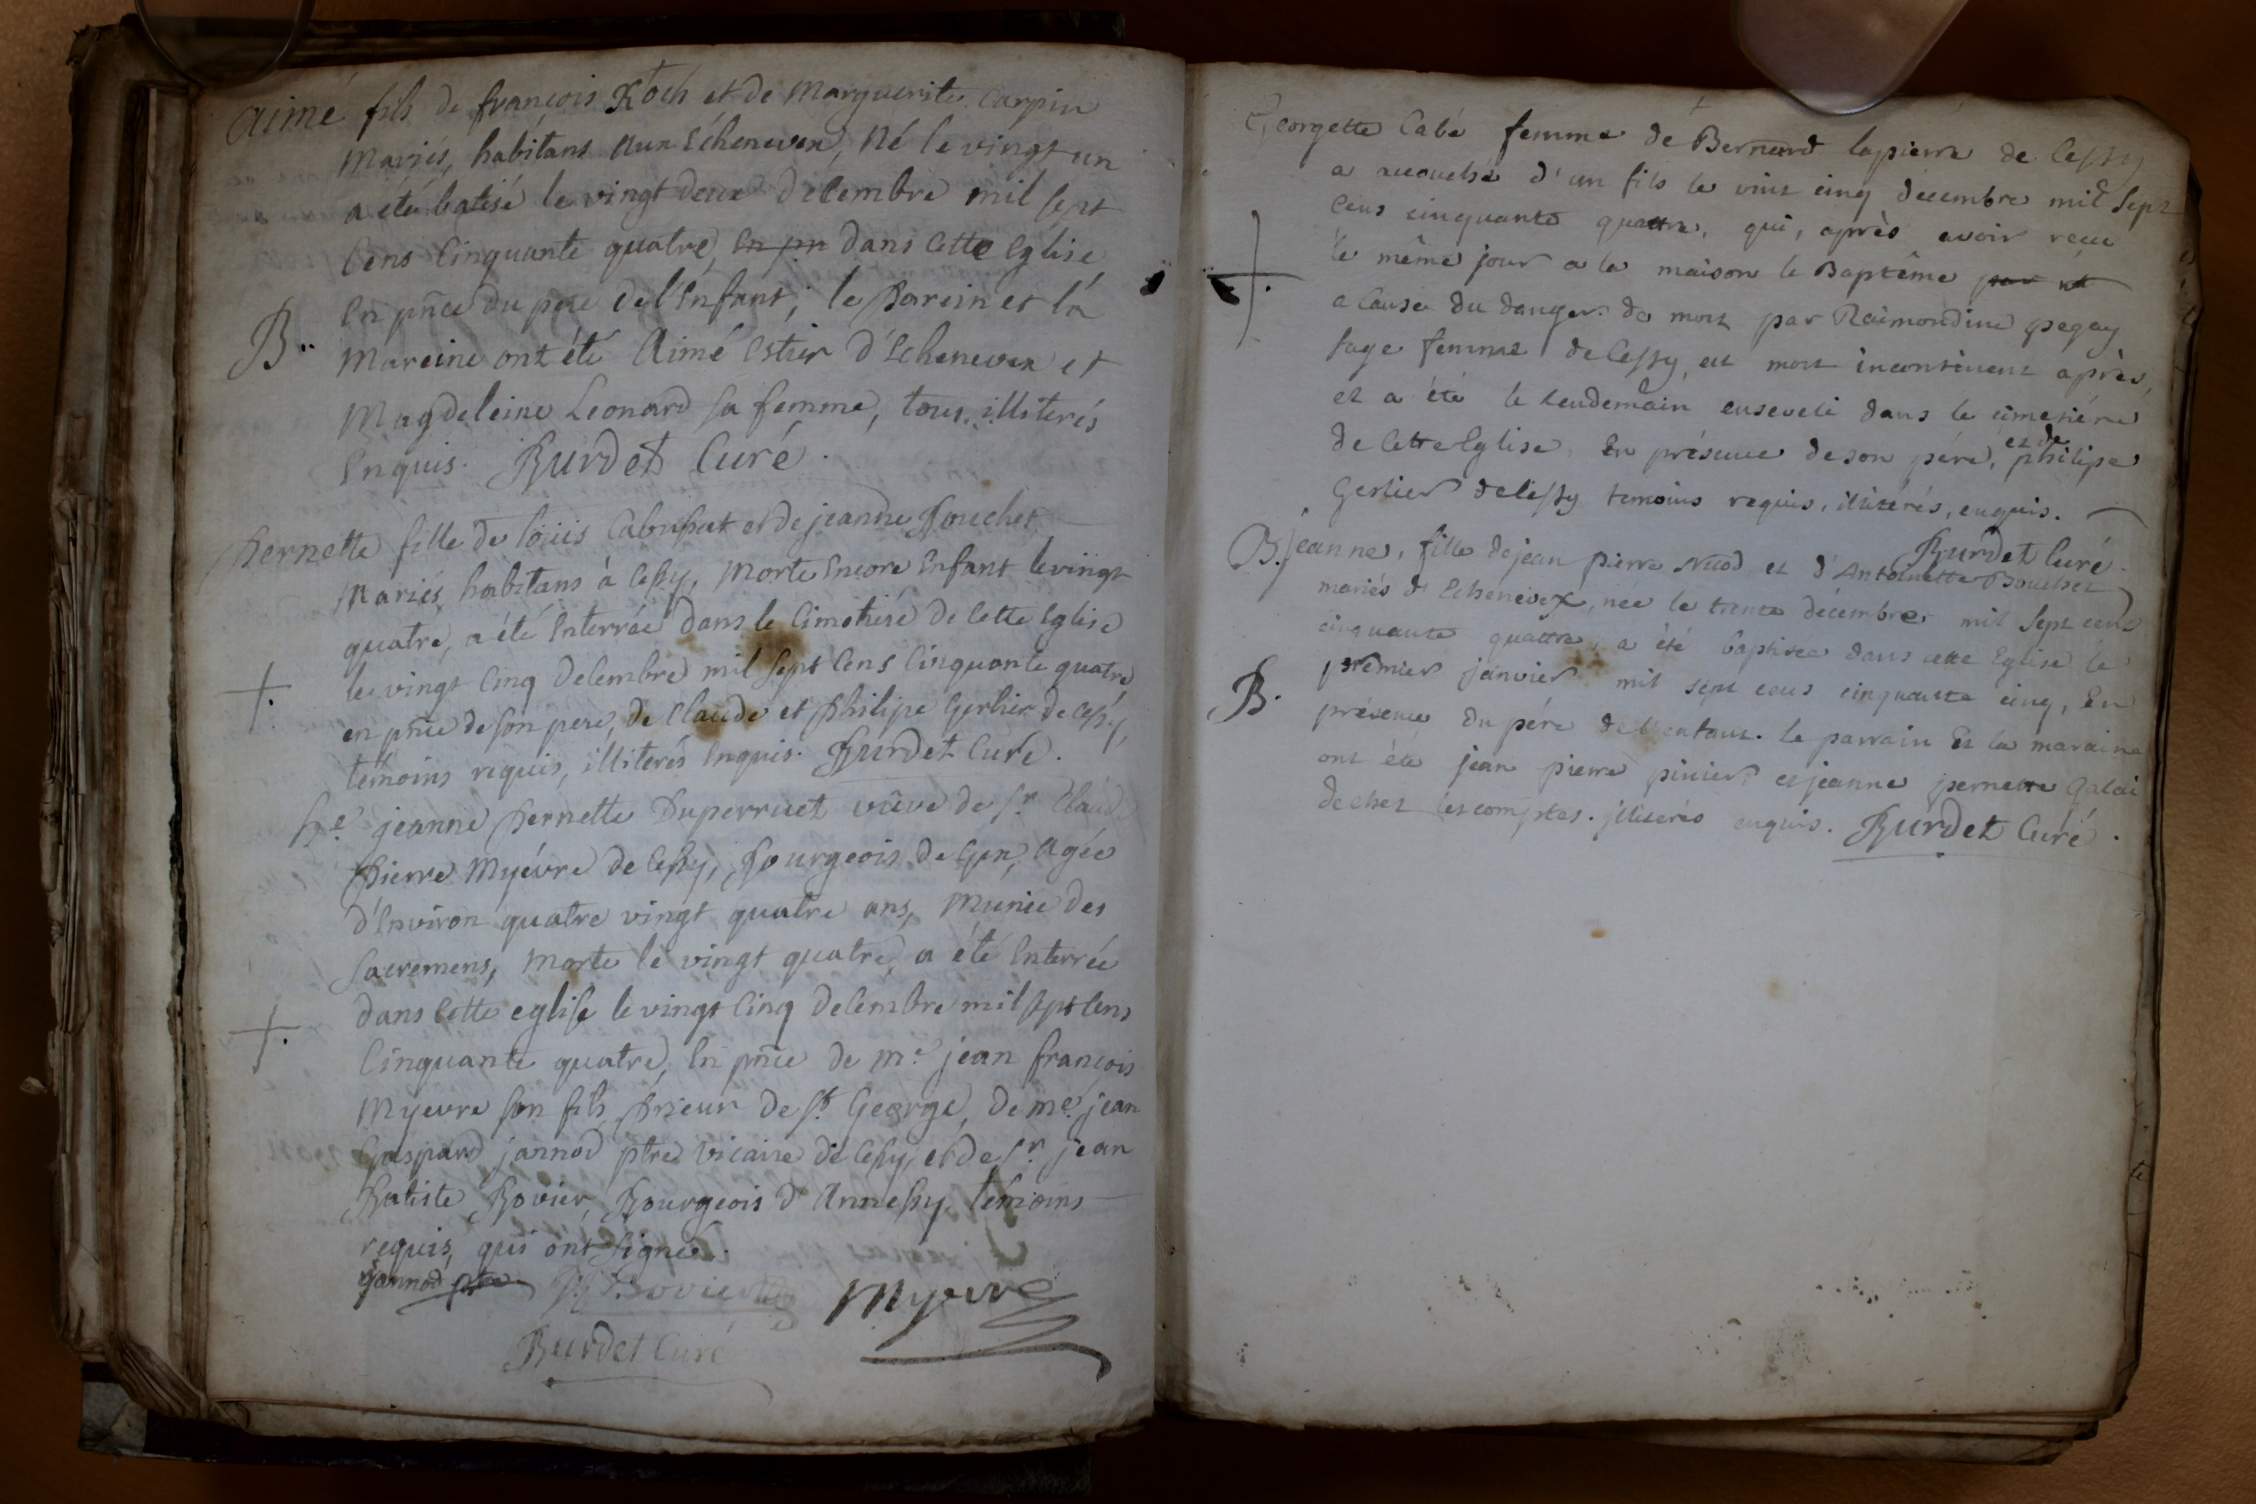 Aimé fils de françois Koch et de Marguerite Carpin
Mariés, habitans aux Echenevex, Né le vingt un
a été batisé le vingt deux decembre mil sept
Cens Cinquante quatre, en pn dans Cette Eglise
En pñce du pere de l'Enfant, le Parein et la
B.. Mareine ont été Aimé Estier d'Echenevex et
Magdeleine Leonard sa femme, tous illiterés
Enquis. Burdet Curé.
Pernette fille de loüis Cabussat et de jeanne Fouchet
Mariés habitans à Cessy, Morte Encore Enfant le vingt
quatre, a été Enterrée dans le Cimetiére de Cette Eglise
+. le vingt Cinq decembre mil sept Cens Cinquante quatre
en pñce de son pere, de Claude et Philipe Gerlier de Cessy,
témoins requis, illiterés Enquis. Burdet Curé.
jeanne Pernette Duperruet veûve de Sr. Claude
Pierre Myévre de Cessy, Bourgeois de Gex, Agée
d'Environ quatre vingt quatre ans, Munie des
Sacremens, Morte le vingt quatre, a été Enterrée
dans Cette eglise le vingt Cinq decembre mil sept Cens
+. Cinquante quatre, En pñce de me. jean françois
Myevre son fils, Prieur de St. George, de me. jean
Gaspard jannod ptre Vicaire de Cessy, et de Sr. jean
Batiste Bovier, Bourgeois d'Annessy témoins
requis, qui ont signés.
jannod ptre Bovier Myevre
Burdet Curé
Georgette Cabé femme de Bernard lapierre de Cessy
a accouché d'un fils le vint cinq décembre mil Sept
Cens cinquante quattre, qui, après avoir reçu
+. le même jour a la maison le Baptême par
a Cause du danger de mort par Raimondine pegay
sage femme de Cessy, est mort incontinent après,
et a été le lendemain enseveli dans le cimetiére
de Cette Eglise, En présence de son pére, et de philipe
Gerlier de Cessy temoins requis, illitérés, enquis.
Burdet Curé.
B. jeanne, fille de jean pierre Nuod et d'Antoinette Bouchet
mariés d'Echenevex, née le trente décembre mil sept cens
cinquante quattre, a été baptisee dans cette Eglise le
B. premier janvier mil sept cens cinquante cinq, En
présence du pére de l'enfant. le parrain Et la maraine
ont été jean pierre pinier et jeanne pernette Galai
de chez les comptes. jllitérés enquis. Burdet Curé.